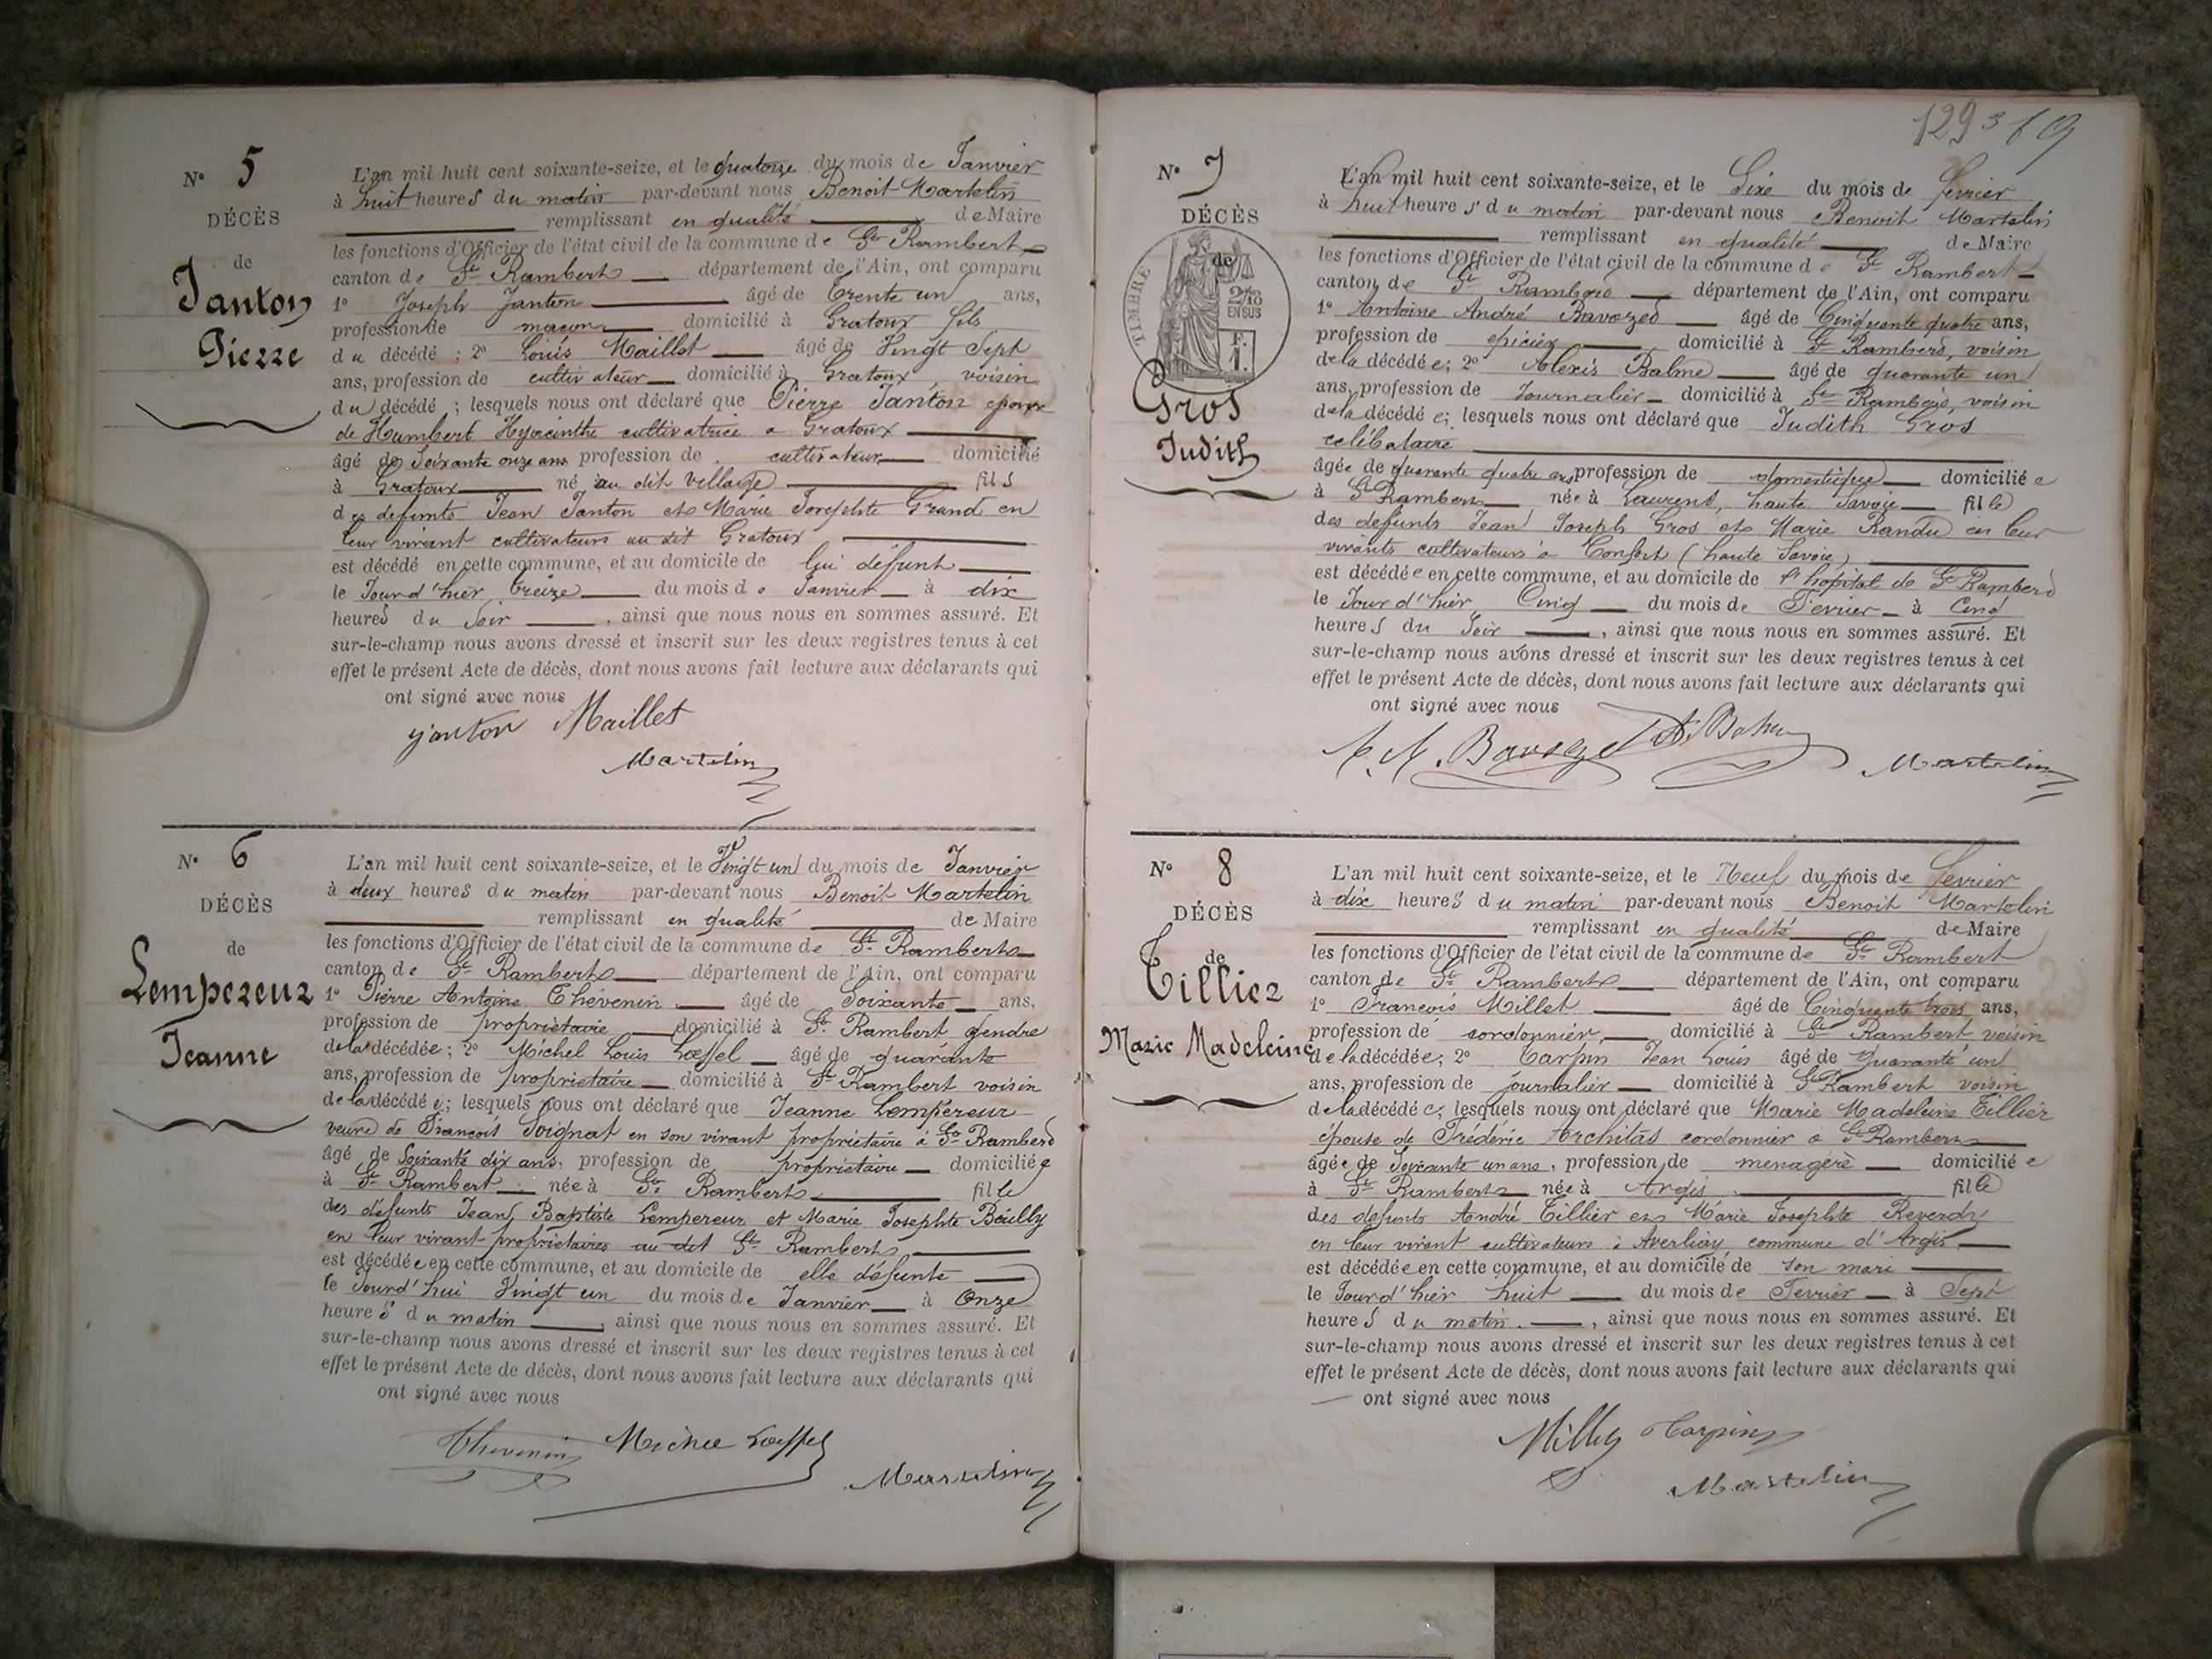 N° 5
DÉCÈS
de
Janton
Pierre
L'an mil huit cent soixante-seize, et le quatorze du mois de Janvier
à huit heures du matin par-devant nous Benoit Martelin
remplissant en qualité de Maire
les fonctions d'Officier de l'état civil de la commune de St Rambert
canton de St Rambert département de l'Ain, ont comparu
1° Joseph Janton âgé de trente un ans,
profession de maçon domicilié à Gratoux fils
du décédé ; 2° Louis Maillet âgé de Vingt Sept
ans, profession de cultivateur domicilié à Gratoux, voisin
du décédé ; lesquels nous ont déclaré que Pierre Janton epoux
de Humbert Hyacinthe cultivatrice a Gratoux
âgé de Soixante onze ans profession de cultivateur domicilié
à Gratoux né au dit village fils
des defunts Jean Janton et Marie Josephte Grand en
leur vivant cultivateurs au dit Gratoux
est décédé en cette commune, et au domicile de lui défunt
le Jour d'hier treize du mois de Janvier à dix
heures du Soir , ainsi que nous nous en sommes assuré. Et
sur-le-champ nous avons dressé et inscrit sur les deux registres tenus à cet
effet le présent Acte de décès, dont nous avons fait lecture aux déclarants qui
ont signé avec nous
janton Maillet
Martelin
N° 6
DÉCÈS
de
Lempereur
Jeanne
L'an mil huit cent soixante-seize, et le Vingt-un du mois de Janvier
à deux heures du matin par-devant nous Benoit Martelin
remplissant en qualité de Maire
les fonctions d'Officier de l'état civil de la commune de St Rambert
canton de St Rambert département de l'Ain, ont comparu
1° Pierre Antoine Thévenin âgé de Soixante ans,
profession de propriétaire domicilié à St Rambert gendre
de la décédée ; 2° Michel Louis Loeffel âgé de quarante
ans, profession de propriétaire domicilié à St Rambert voisin
de la décédée ; lesquels nous ont déclaré que Jeanne Lempereur
veuve de François Soignat en son vivant propriétaire à St Rambert
âgé de Soixante dix ans, profession de propriétaire domiciliée
à St Rambert née à St Rambert fille
des défunts Jean Baptiste Lempereur et Marie Josephte
en leur vivant propriétaires au dit St Rambert
est décédée en cette commune, et au domicile de elle défunte
le Jourd'hui Vingt un du mois de Janvier à Onze
heures du matin , ainsi que nous nous en sommes assuré. Et
sur-le-champ nous avons dressé et inscrit sur les deux registres tenus à cet
effet le présent Acte de décès, dont nous avons fait lecture aux déclarants qui
ont signé avec nous
Thevenin Michel Loeffel
Martelin
129
N° 7
DÉCÈS
de
TIMBRE
2/10
EN SUS
F.
1.
Gros
Judith
L'an mil huit cent soixante-seize, et le Sixe du mois de fevrier
à huit heures du matin par-devant nous Benoit Martelin
remplissant en qualité de Maire
les fonctions d'Officier de l'état civil de la commune de St Rambert
canton de St Rambert département de l'Ain, ont comparu
1° Antoine André Bavozed âgé de Cinquante quatre ans,
profession de epicier domicilié à St Rambert, voisin
de la décédée ; 2° Alexis Balme âgé de quarante un
ans, profession de Journalier domicilié à St Rambert, voisin
de la décédée ; lesquels nous ont déclaré que Judith Gros
celibataire
âgée de quarante quatre ans profession de domestique domiciliée
à St Rambert née à Laurent, haute Savoie fille
des defunts Jean Joseph Gros et Marie Randu en leur
vivants cultivateurs a Confort (haute Savoie)
est décédée en cette commune, et au domicile de l'hopital de St Rambert
le Jour d'hier Cinq du mois de Fevrier à Cinq
heures du Soir , ainsi que nous nous en sommes assuré. Et
sur-le-champ nous avons dressé et inscrit sur les deux registres tenus à cet
effet le présent Acte de décès, dont nous avons fait lecture aux déclarants qui
ont signé avec nous
Martelin
N° 8
DÉCÈS
de
Tillier
Marie Madeleine
L'an mil huit cent soixante-seize, et le Neuf du mois de fevrier
à dix heures du matin par-devant nous Benoit Martelin
remplissant en qualité de Maire
les fonctions d'Officier de l'état civil de la commune de St Rambert
canton de St Rambert département de l'Ain, ont comparu
1° François Millet âgé de Cinquante trois ans,
profession de cordonnier, domicilié à St Rambert voisin
de la décédée ; 2° Carpin Jean Louis âgé de quarante un
ans, profession de journalier domicilié à St Rambert voisin
de la décédée ; lesquels nous ont déclaré que Marie Madeleine Tillier
épouse de Frédéric Architas cordonnier a St Rambert
âgée de Soixante un ans, profession de menagère domiciliée
à St Rambert née à Argis fille
des defunts André Tillier et Marie Josephte Reverdy
en leur vivant cultivateurs à Averliaz commune d'Argis
est décédée en cette commune, et au domicile de son mari
le Jour d'hier huit du mois de Fevrier à Sept
heures du matin. , ainsi que nous nous en sommes assuré. Et
sur-le-champ nous avons dressé et inscrit sur les deux registres tenus à cet
effet le présent Acte de décès, dont nous avons fait lecture aux déclarants qui
ont signé avec nous
Carpin
Martelin